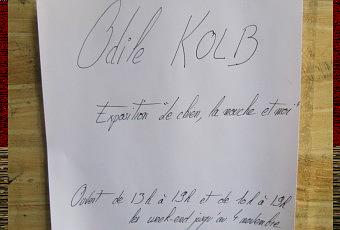 Odile KOLB
Exposition "le chien, la mouche et moi"
Ouvert de 13h à 19h et de 10h à 19h
les week-end jusqu'au 4 novembre